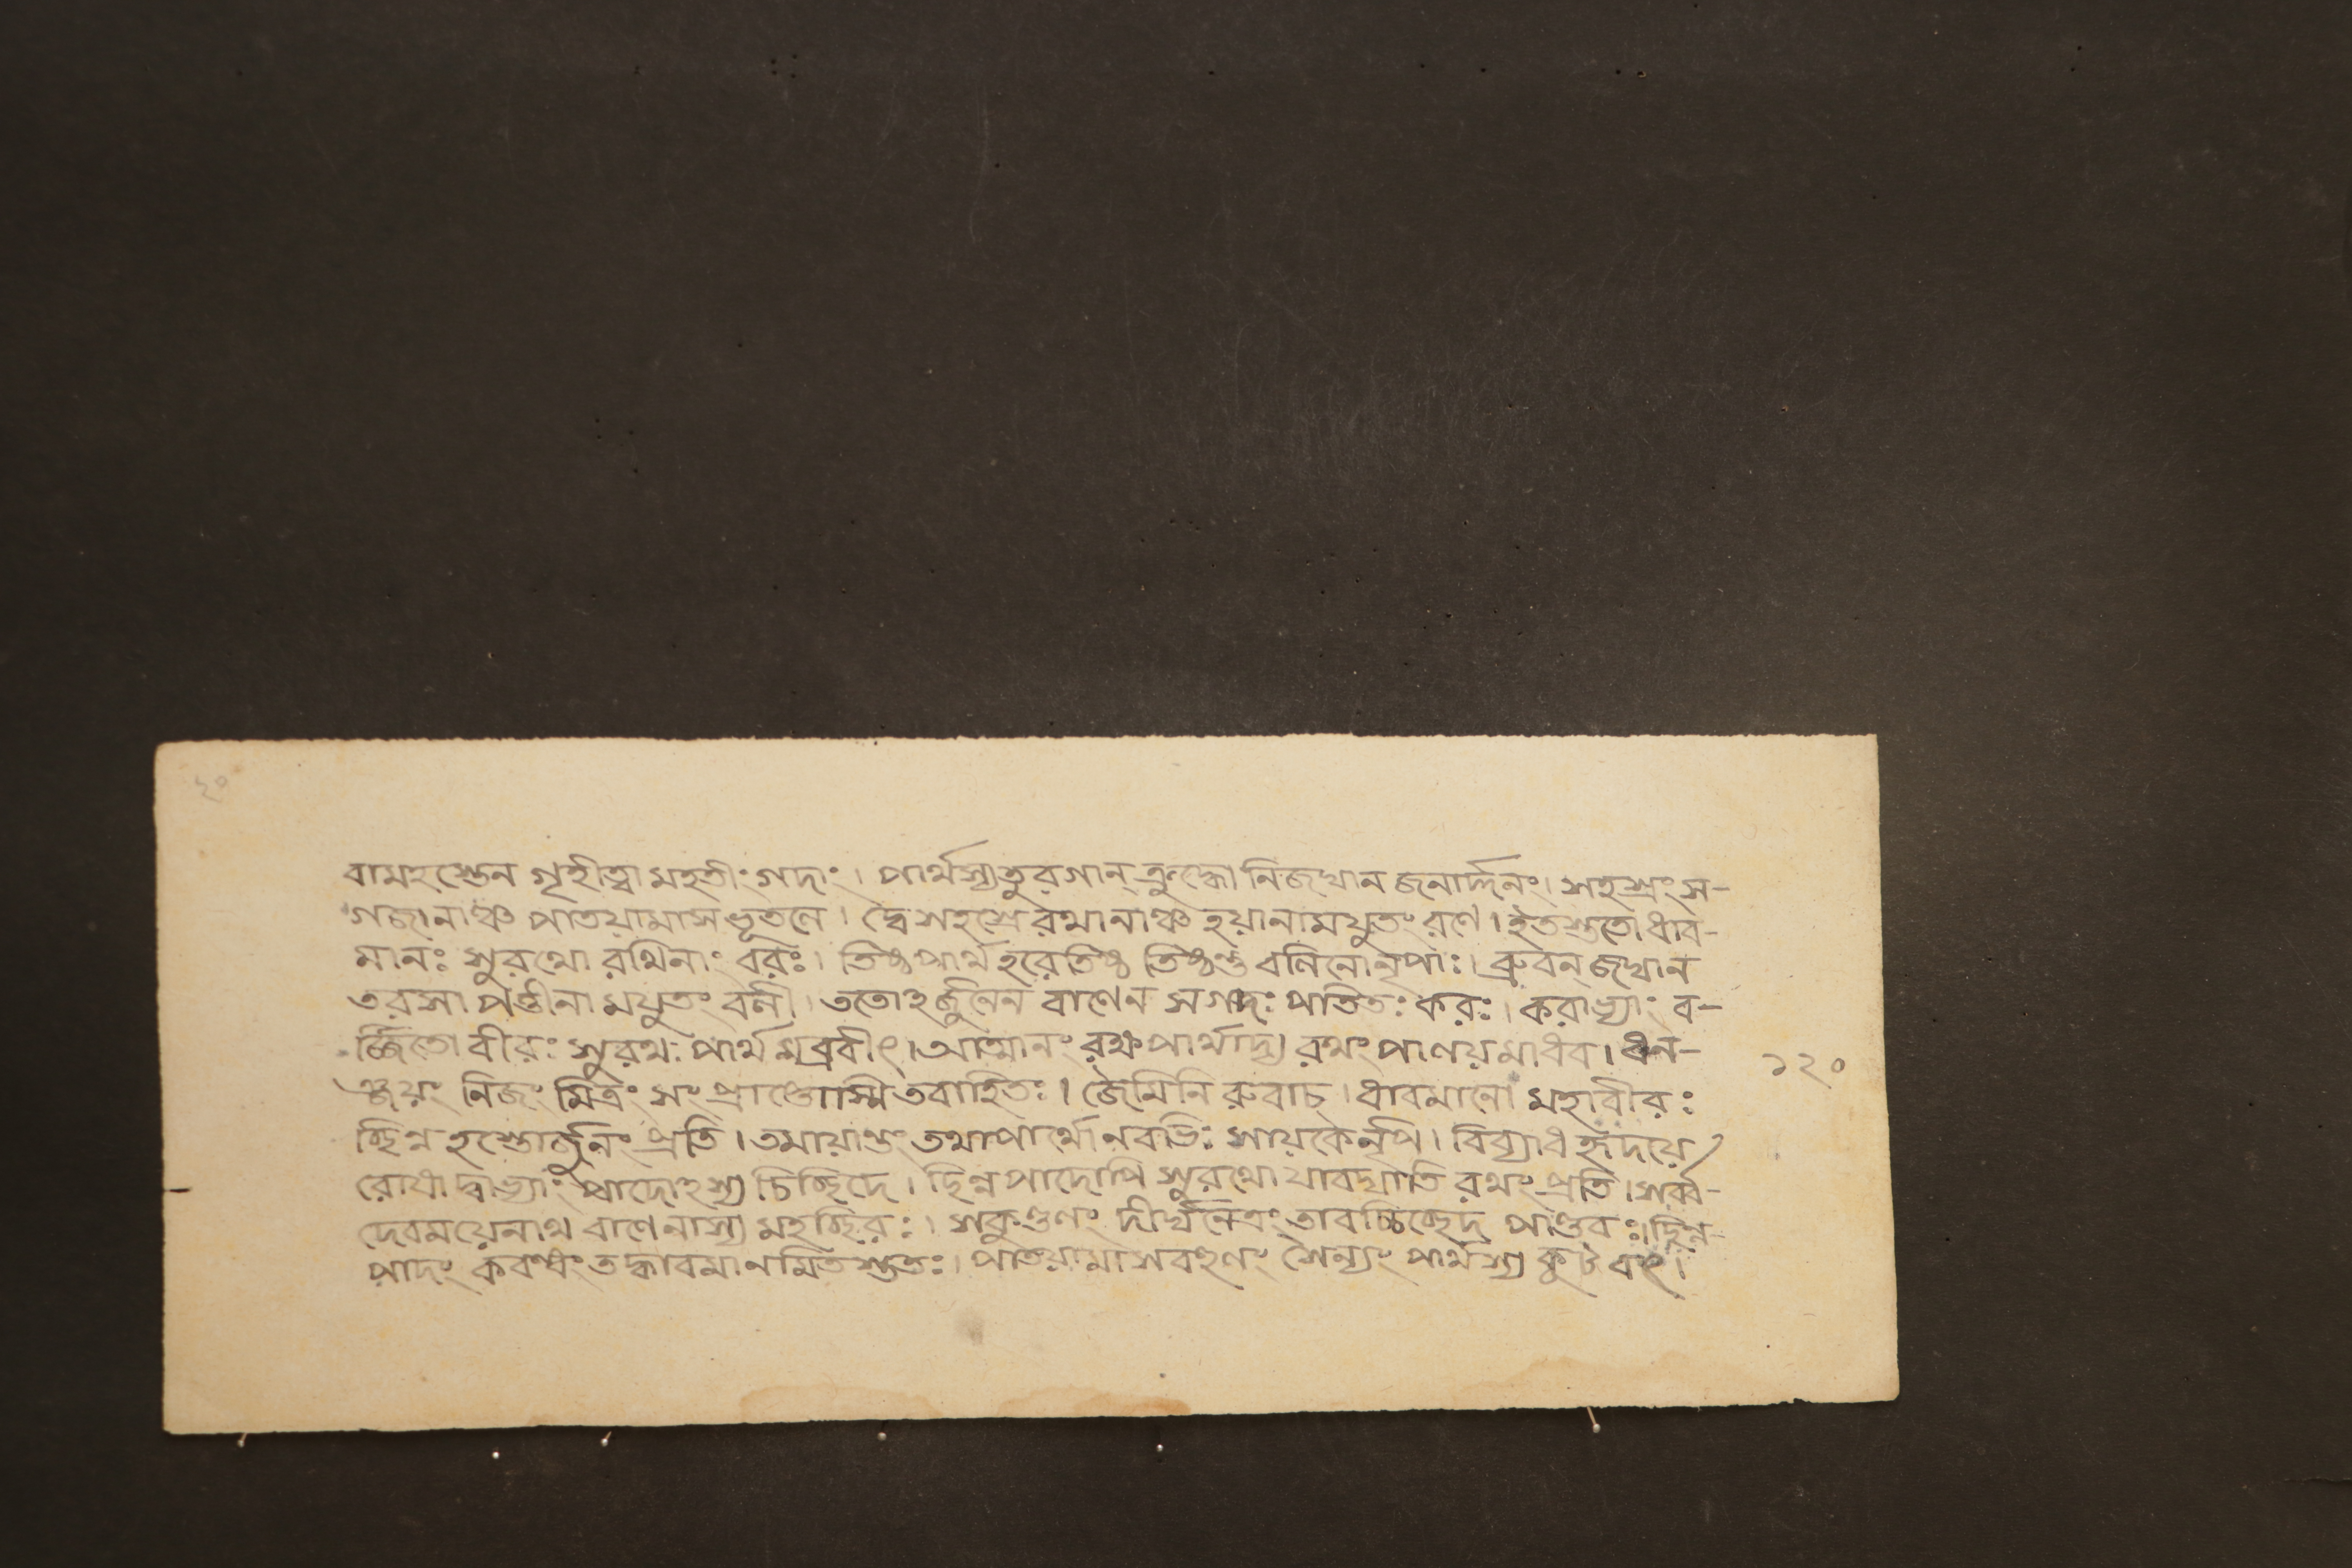 বামহস্তেন গৃহীত্বা মহতীং গদাং। পার্থস্য তুরগান্ ক্রুদ্ধো নিজঘান জনার্দ্দনং। সহস্রং স-
গজানাঞ্চ পাতয়ামাস ভূতলে। দ্বে সহস্রে রথানাঞ্চ হয়ানামযুতং রণে। ইতস্ততো ধাব-
মানঃ সুরথো রথিনাং বরঃ। তিষ্ঠ পার্থ হরে তিষ্ঠ তিষ্ঠন্তু বলিনো নৃপাঃ। ব্রুবন্ জঘান
তরসা পত্তীনামযুতং বলী। ততোঽর্জ্জুনেন বাণেন সগদঃ পাতিতঃ করঃ। করাভ্যাং ব-
র্জ্জিতো বীরঃ সুরথঃ পার্থমব্রবীৎ। আত্মানং রক্ষ পার্থাদ্য রথং পালয় মাধব। ধন-
ঞ্জয়ং নিজং মিত্রং সংপ্রাপ্তোস্মি তবাহিতঃ। জৈমিনি রুবাচ। ধাবমানো মহাবীরঃ
চ্ছিন্ন হস্তোর্জ্জুনং প্রতি। তমায়ান্তং তথা পার্থো নবভিঃ সায়কৈর্নৃপ। বিব্যাধ হৃদয়ে
রোষাদ্দ্বাভ্যাং পাদোঽস্য চিচ্ছিদে। ছিন্নপাদোপি সুরথো যাবদ্যাতি রথং প্রতি। সর্ব্ব-
দেবময়েনাথ বাণেনাস্য মহচ্ছিরঃ। সকুণ্ডলং দীর্ঘনেত্রং তাবচ্চিচ্ছেদ পাণ্ডবঃ। ছিন্ন-
পাদং কবন্ধং তদ্ধাবমানমিতস্ততঃ। পাতয়ামাস বহুলং সৈন্যং পার্থস্য
১২০